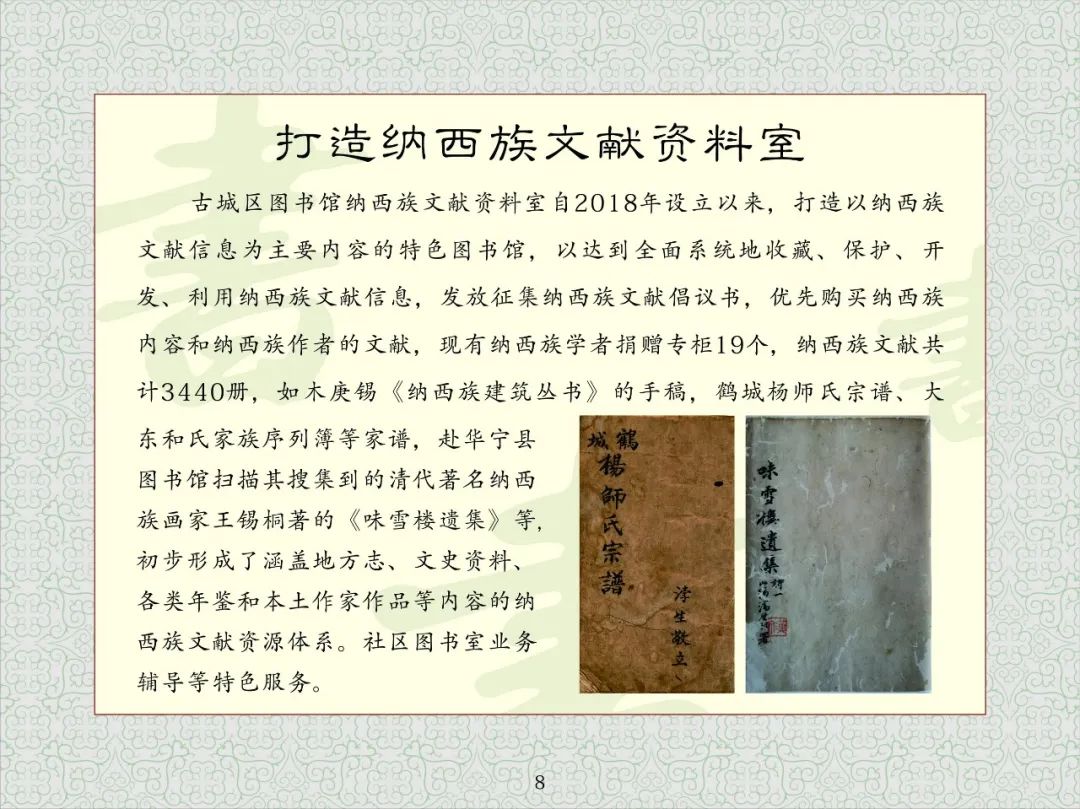 打造纳西族文献资料室
古城区图书馆纳西族文献资料室自2018年设立以来，打造以纳西族
文献信息为主要内容的特色图书馆，以达到全面系统地收藏、保护、开
发、利用纳西族文献信息，发放征集纳西族文献倡议书，优先购买纳西族
内容和纳西族作者的文献，现有纳西族学者捐赠专柜19个，纳西族文献共
计3440册，如木庚锡《纳西族建筑丛书》的手稿，鹤城杨师氏宗谱、大
东和氏家族序列簿等家谱，赴华宁县
图书馆扫描其搜集到的清代著名纳西
族画家王锡桐著的《味雪楼遗集》等，
初步形成了涵盖地方志、文史资料、
各类年鉴和本土作家作品等内容的纳
西族文献资源体系。社区图书室业务
辅导等特色服务。
鶴城
楊師氏宗譜
味雪楼遺集
8